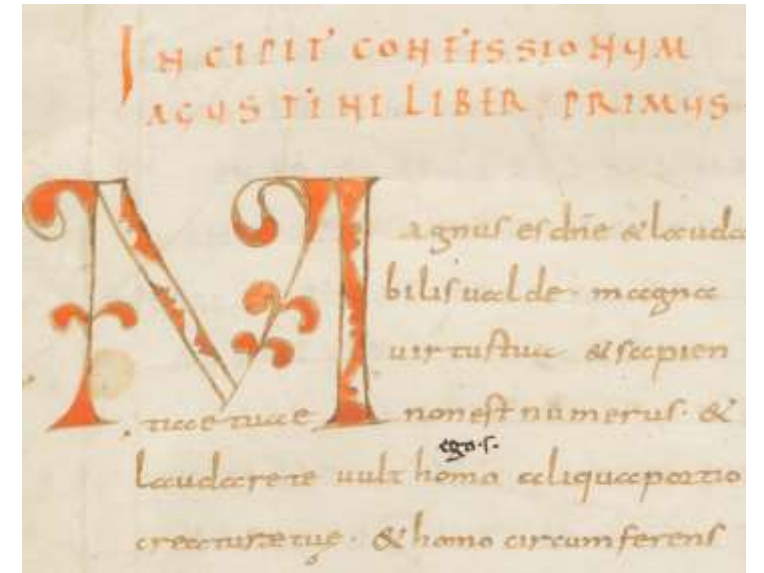 INCIPIT CONFESSIONUM
AGUSTINI LIBER PRIMUS
Magnus es dn̄e & lauda
bilis ualde· magna
uirtus tua & sapien
tiae tuae non est numerus· &
ego·s·
laudare te uult homo aliqua portio
creaturae tuę· & homo circumferens